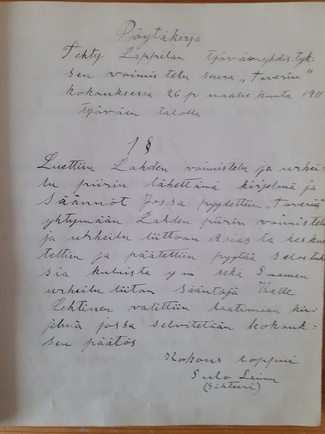 Pöytäkirja
Tehty Lappilan työväenyhdistyk-
sen voimistelu seura "Toverin"
kokouksessa 26 p maalis kuuta 1911
työväen talolla
1 §
Luettiin Lahden voimistelu ja urhei-
lu piirin lähettämä kirjelmä ja
säännöt Jossa pyydettiin Toveria
yhtymään Lahden piirin voimistelu
ja urheilu liittoon Asiasta keskus-
teltiin ja päätettiin pyytää selostuk-
sia kuluista y m sekä Suomen
urheilu liiton sääntöjä Kalle
Lehtinen valittiin laatimaan kir-
jelmä jossa selvitetään kokouk-
sen päätös
Kokous loppui
Eulo
(sihteeri)